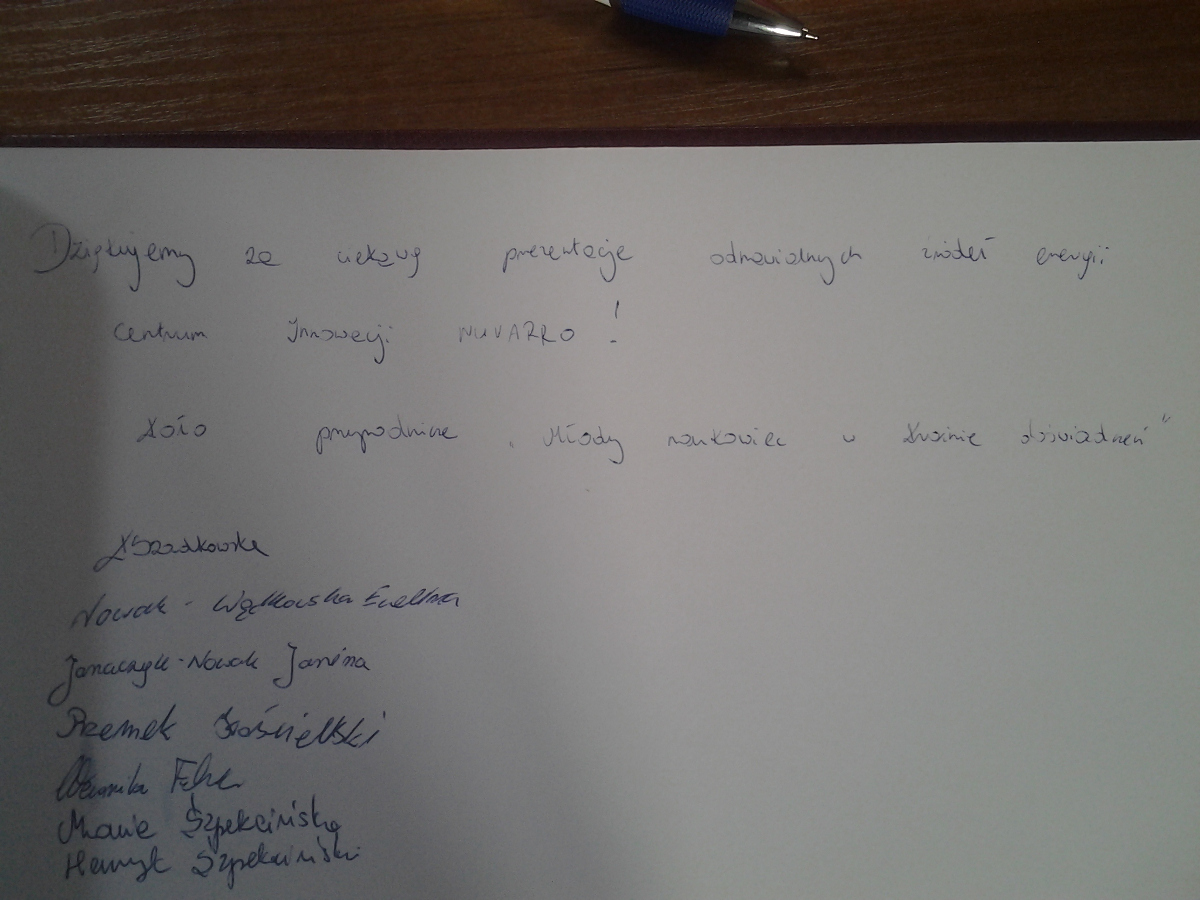 Dziękujemy za ciekawą prezentację odnawialnych źródeł energii
Centrum Innowacji NUVARRO!
Koło przyrodnicze „Młody naukowiec w krainie doświadczeń”
KSzadkowska
Nowak - Ewelina
Janaczyk-Nowak Janina
Przemek Kościelski
Weronika
Maria Szpekcińska
Henryk Szpekciński